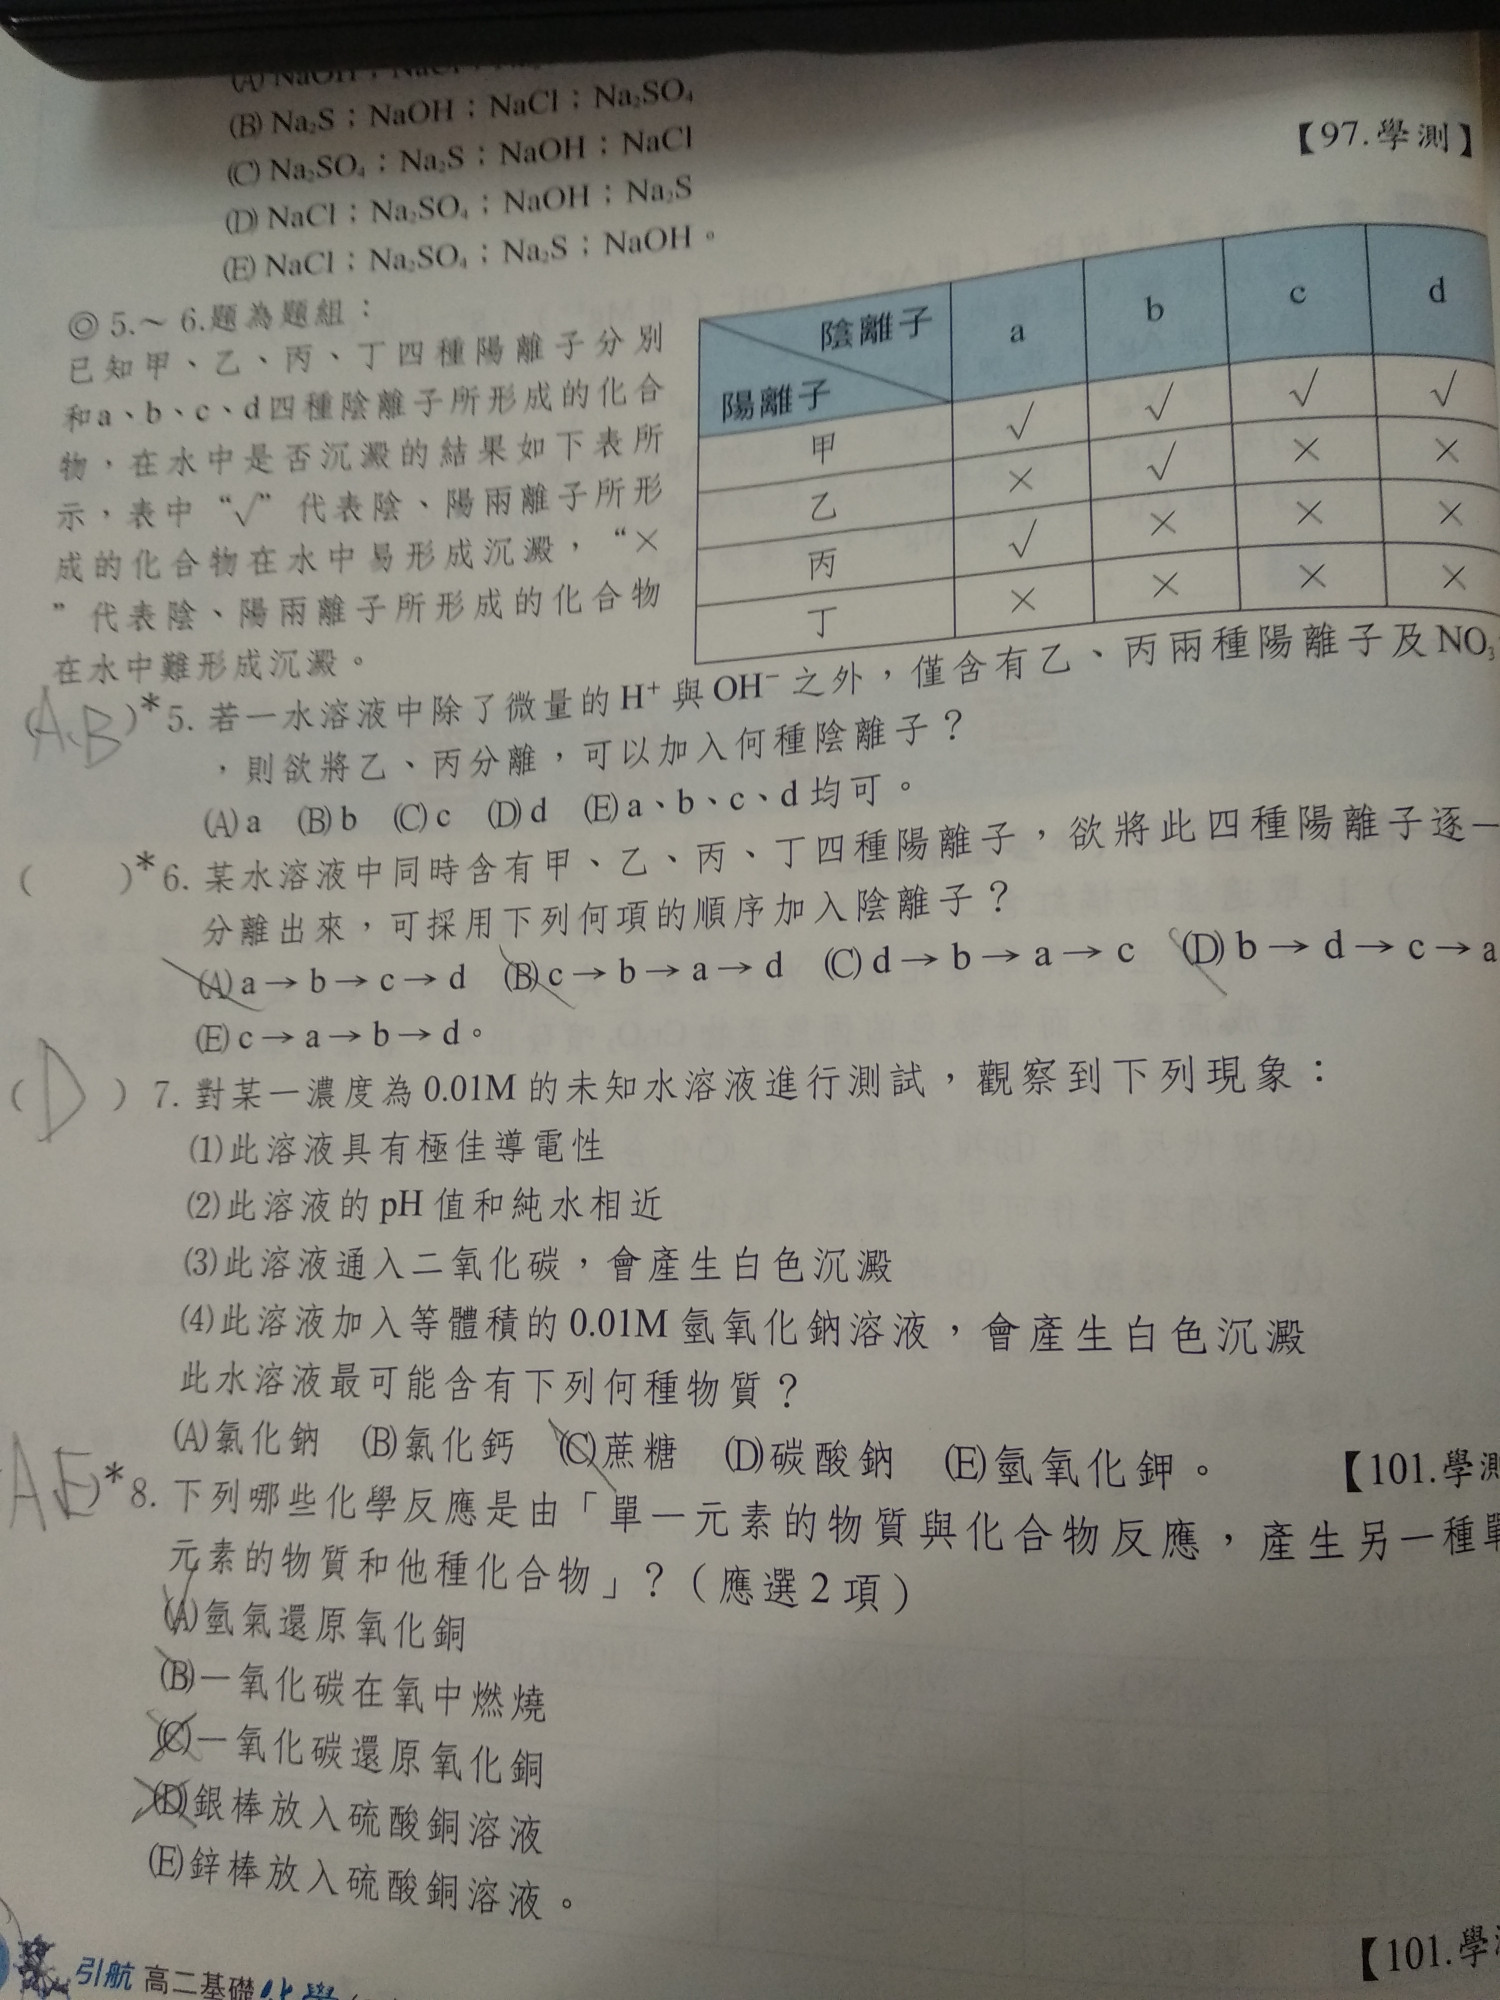 (A) NaOH；NaCl；Na₂
(B) Na₂S；NaOH；NaCl；Na₂SO₄
(C) Na₂SO₄；Na₂S；NaOH；NaCl
(D) NaCl；Na₂SO₄；NaOH；Na₂S
(E) NaCl；Na₂SO₄；Na₂S；NaOH。
【97.學測】
◎5.～6.題為題組：
已知甲、乙、丙、丁四種陽離子分別
和a、b、c、d四種陰離子所形成的化合
物，在水中是否沉澱的結果如下表所
示，表中“√”代表陰、陽兩離子所形
成的化合物在水中易形成沉澱，“×
”代表陰、陽兩離子所形成的化合物
在水中難形成沉澱。
陰離子 a b c d
陽離子
甲 √ √ √ √
乙 × √ × ×
丙 √ × × ×
丁 × × × ×
(A,B)*5. 若一水溶液中除了微量的H⁺與OH⁻之外，僅含有乙、丙兩種陽離子及NO₃
，則欲將乙、丙分離，可以加入何種陰離子？
(A) a (B) b (C) c (D) d (E) a、b、c、d均可。
( )*6. 某水溶液中同時含有甲、乙、丙、丁四種陽離子，欲將此四種陽離子逐一
分離出來，可採用下列何項的順序加入陰離子？
(A) a→b→c→d (B) c→b→a→d (C) d→b→a→c (D) b→d→c→a
(E) c→a→b→d。
(D) 7. 對某一濃度為0.01M的未知水溶液進行測試，觀察到下列現象：
(1)此溶液具有極佳導電性
(2)此溶液的pH值和純水相近
(3)此溶液通入二氧化碳，會產生白色沉澱
(4)此溶液加入等體積的0.01M氫氧化鈉溶液，會產生白色沉澱
此水溶液最可能含有下列何種物質？
(A)氯化鈉 (B)氯化鈣 (C)蔗糖 (D)碳酸鈉 (E)氫氧化鉀。
【101.學測
AE)*8. 下列哪些化學反應是由「單一元素的物質與化合物反應，產生另一種單
元素的物質和他種化合物」？（應選2項）
(A)氫氣還原氧化銅
(B)一氧化碳在氧中燃燒
(C)一氧化碳還原氧化銅
(D)銀棒放入硫酸銅溶液
(E)鋅棒放入硫酸銅溶液。
【101.學測
引航 高二基礎化學